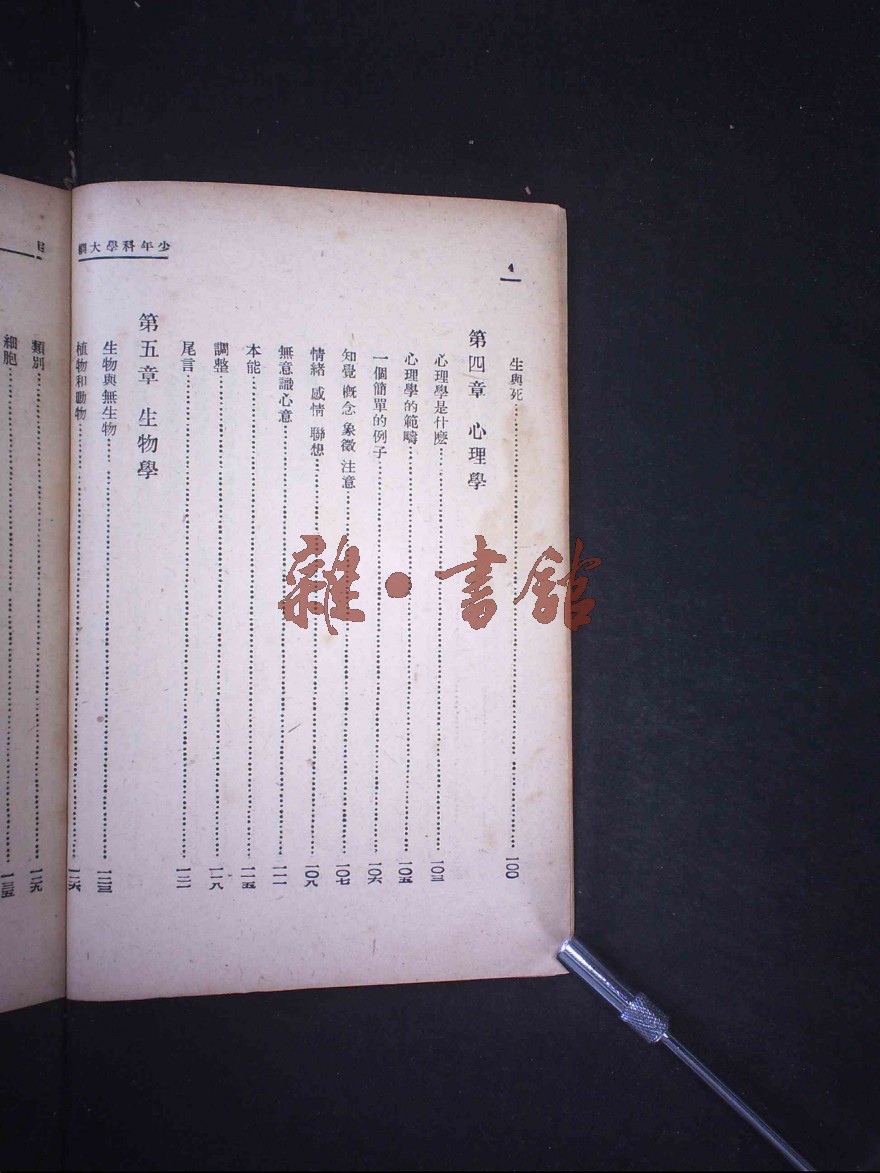 少年科學大綱
4
生與死 一〇〇
第四章 心理學
心理學是什麽 一〇三
心理學的範疇 一〇五
一個簡單的例子 一〇六
知覺 概念 象徵 注意 一〇七
情緒 感情 聯想 一〇八
無意識心意 一一一
本能 一一五
調整 一一八
尾言 一二一
第五章 生物學
生物與無生物 一二三
植物和動物 一二六
類別 一二九
細胞 一三五
雜·書館